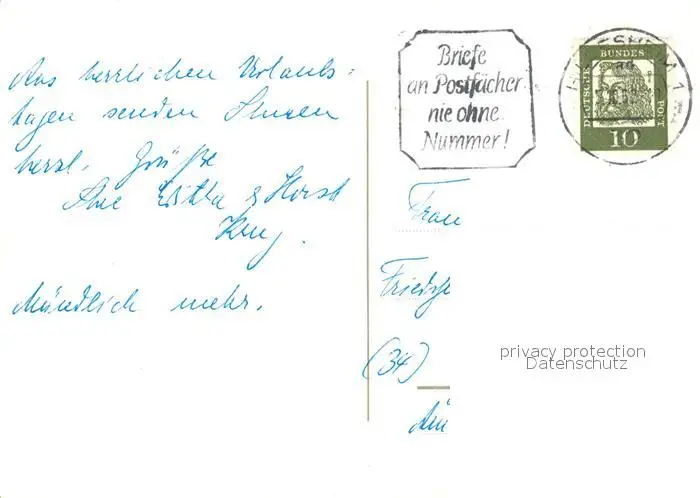 Aus herrlichen Urlaubs-
tagen senden Ihnen
herzl. Grüße
Ihre & Horst
Mündlich mehr.
Briefe
an Postfächer
nie ohne
Nummer!
DEUTSCHE BUNDESPOST
10
Frau
(34)
privacy protection
Datenschutz